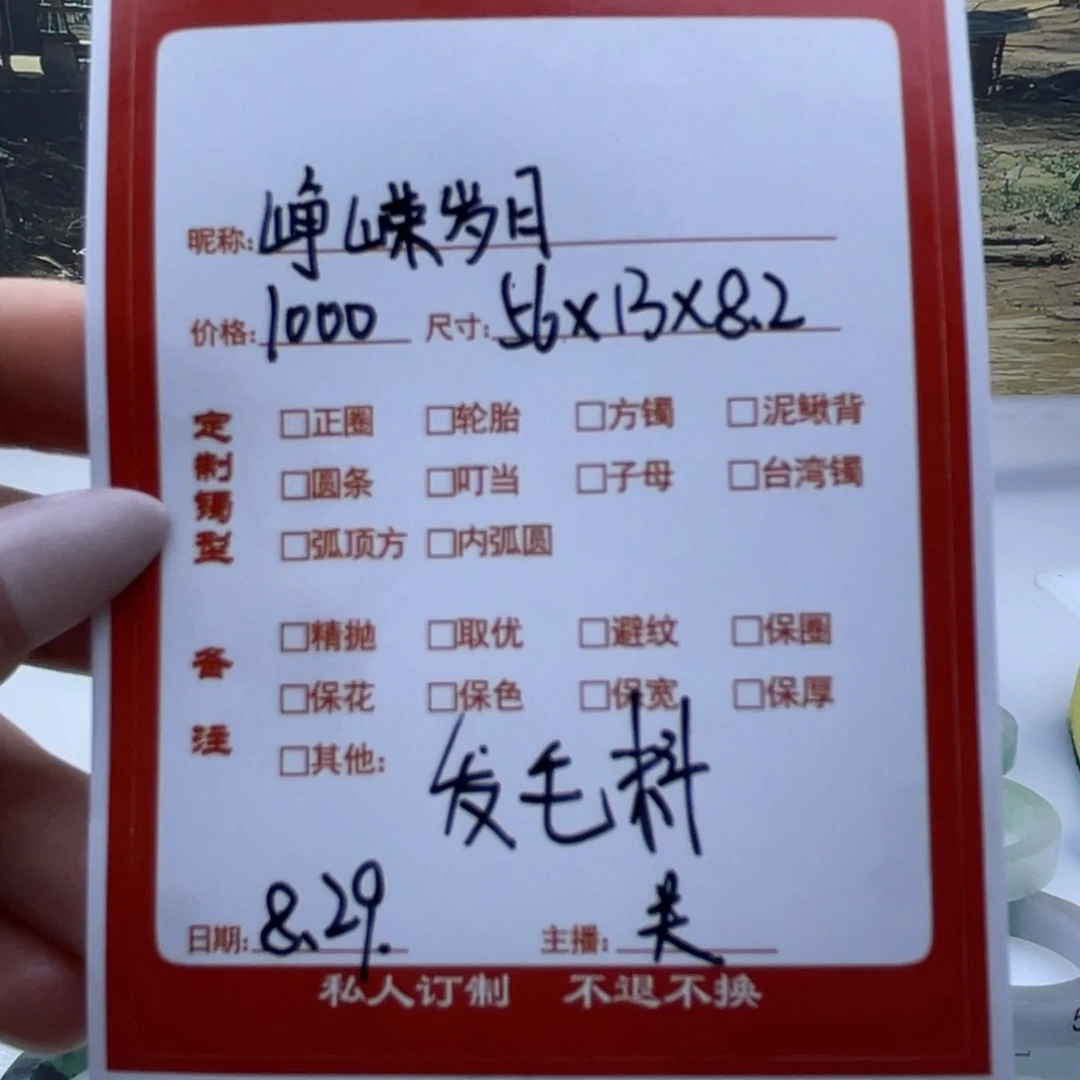 昵称: 峥嵘岁月
价格: 1000 尺寸: 56×13×8.2
定制镯型
□正圈 □轮胎 □方镯 □泥鳅背
□圆条 □叮当 □子母 □台湾镯
□弧顶方 □内弧圆
备注
□精抛 □取优 □避纹 □保圈
□保花 □保色 □保宽 □保厚
□其他: 发毛料
日期: 8.29. 主播:
私人订制 不退不换